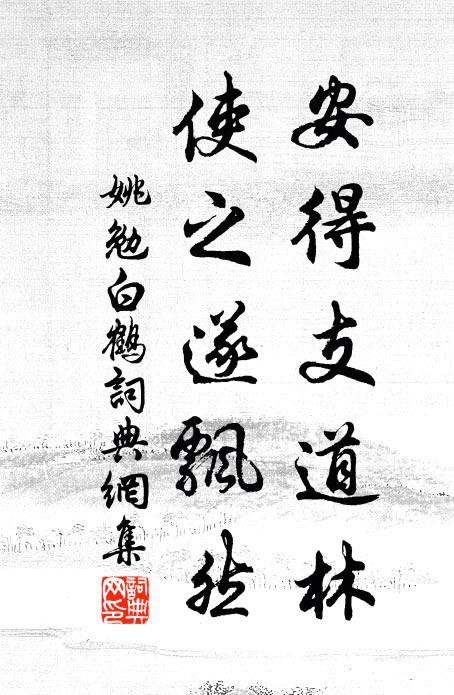 安得支道林
使之遂飄然
姚勉白鶴詞典網集
詞典網印